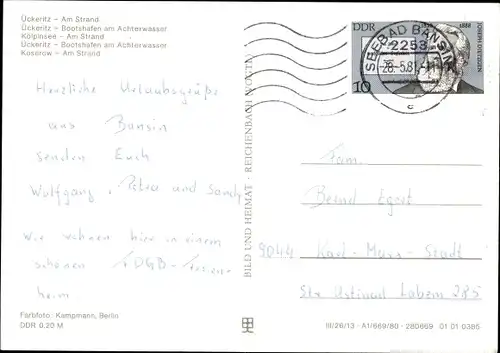 Ückeritz – Am Strand
Ückeritz – Bootshafen am Achterwasser
Kölpinsee – Am Strand
Ückeritz – Bootshafen am Achterwasser
Koserow – Am Strand
Herzliche Urlaubsgrüße
aus Bansin
senden Euch
Wolfgang, Petra und
Wir wohnen hier in einem
schönen FDGB-Ferien-
heim
Farbfoto: Kampmann, Berlin
DDR 0,20 M
BILD UND HEIMAT · REICHENBACH (VOGTL)
DDR
1888
10
SEEBAD BANSIN
2253
28-5.81
c
Fam.
Bernd
9044 Karl-Marx-Stadt
285
III/26/13 · A1/669/80 · 280669 01 01 0386